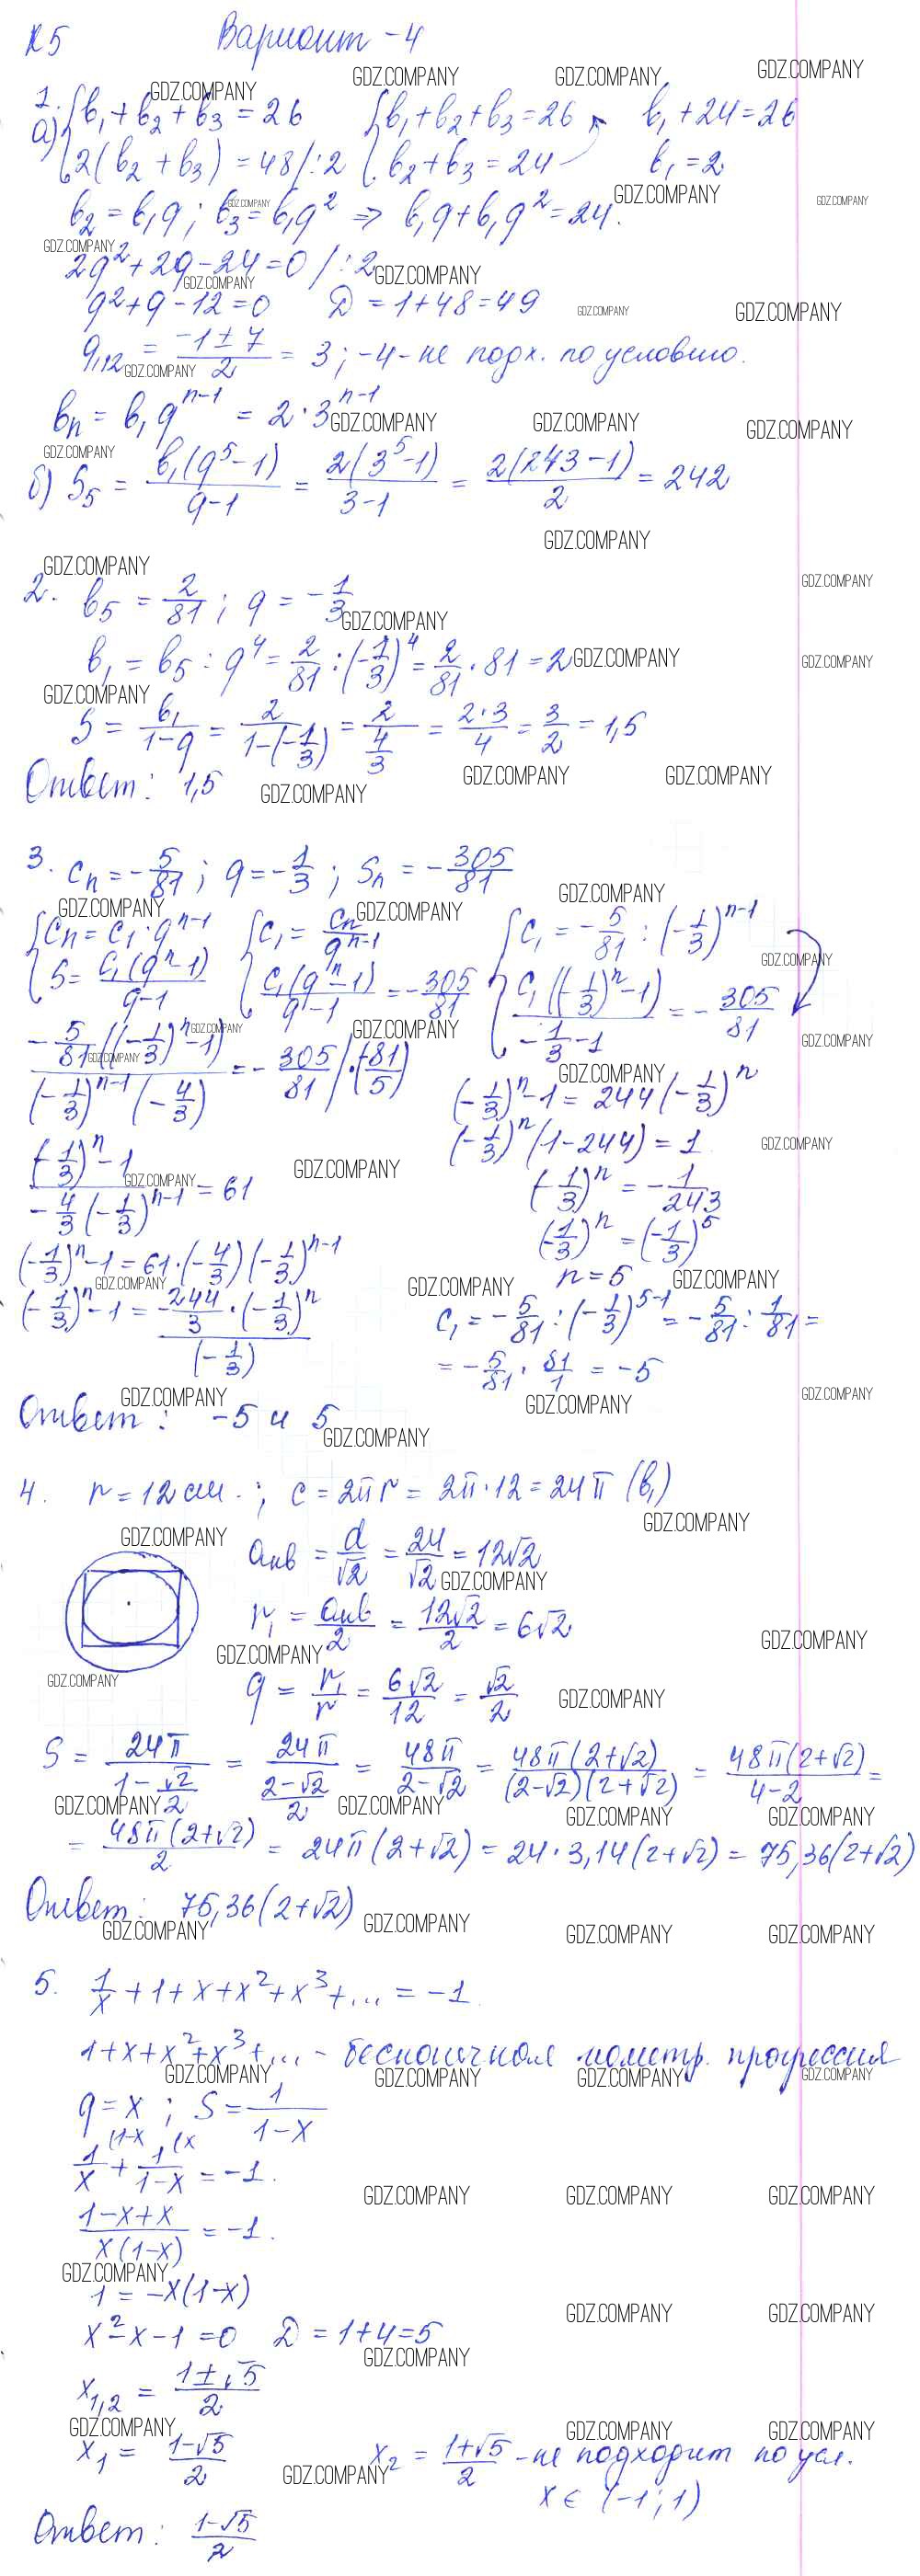 К5 Вариант - 4
1. а) { b₁ + b₂ + b₃ = 26 { b₁ + b₂ + b₃ = 26 b₁ + 24 = 26
{ 2(b₂ + b₃) = 48 /:2 { b₂ + b₃ = 24 b₁ = 2
b₂ = b₁q ; b₃ = b₁q² ⇒ b₁q + b₁q² = 24.
2q² + 2q - 24 = 0 /:2
q² + q - 12 = 0 D = 1 + 48 = 49
q₁,₂ = (-1 ± 7)/2 = 3 ; -4 - не подх. по условию.
bₙ = b₁qⁿ⁻¹ = 2 · 3ⁿ⁻¹
б) S₅ = b₁(q⁵ - 1)/(q - 1) = 2(3⁵ - 1)/(3 - 1) = 2(243 - 1)/2 = 242
2. b₅ = 2/81 ; q = -1/3
b₁ = b₅ : q⁴ = 2/81 : (-1/3)⁴ = 2/81 · 81 = 2
S = b₁/(1 - q) = 2/(1 - (-1/3)) = 2/(4/3) = 2·3/4 = 3/2 = 1,5
Ответ: 1,5
3. cₙ = -5/81 ; q = -1/3 ; Sₙ = -305/81
{ cₙ = c₁ · qⁿ⁻¹ { c₁ = cₙ/qⁿ⁻¹ { c₁ = -5/81 : (-1/3)ⁿ⁻¹
{ S = c₁(qⁿ - 1)/(q - 1) { c₁(qⁿ - 1)/(q - 1) = -305/81 { c₁((-1/3)ⁿ - 1)/(-1/3 - 1) = -305/81
-5/81((-1/3)ⁿ - 1)/((-1/3)ⁿ⁻¹(-4/3)) = -305/81 /·(-81/5)
((-1/3)ⁿ - 1)/(-4/3(-1/3)ⁿ⁻¹) = 61
(-1/3)ⁿ - 1 = 61 · (-4/3)(-1/3)ⁿ⁻¹
(-1/3)ⁿ - 1 = (-244/3 · (-1/3)ⁿ)/(-1/3)
(-1/3)ⁿ - 1 = 244(-1/3)ⁿ
(-1/3)ⁿ(1 - 244) = 1
(-1/3)ⁿ = -1/243
(-1/3)ⁿ = (-1/3)⁵
n = 5
c₁ = -5/81 : (-1/3)⁵⁻¹ = -5/81 : 1/81 =
= -5/81 · 81/1 = -5
Ответ: -5 и 5
4. r = 12 см. ; c = 2πr = 2π·12 = 24π (b₁)
aкв = d/√2 = 24/√2 = 12√2
r₁ = aкв/2 = 12√2/2 = 6√2
q = r₁/r = 6√2/12 = √2/2
S = 24π/(1 - √2/2) = 24π/((2-√2)/2) = 48π/(2-√2) = 48π(2+√2)/((2-√2)(2+√2)) = 48π(2+√2)/(4-2) =
= 48π(2+√2)/2 = 24π(2+√2) = 24·3,14(2+√2) = 75,36(2+√2)
Ответ: 75,36(2+√2)
5. 1/x + 1 + x + x² + x³ + ... = -1.
1 + x + x² + x³ + ... - бесконечная геометр. прогрессия
q = x ; S = 1/(1-x)
1/x (1-x + 1/(1-x) (x = -1.
(1-x+x)/(x(1-x)) = -1.
1 = -x(1-x)
x² - x - 1 = 0 D = 1 + 4 = 5
x₁,₂ = (1 ± √5)/2
x₁ = (1-√5)/2 x₂ = (1+√5)/2 - не подходит по усл.
x ∈ (-1 ; 1)
Ответ: (1-√5)/2
GDZ.COMPANY